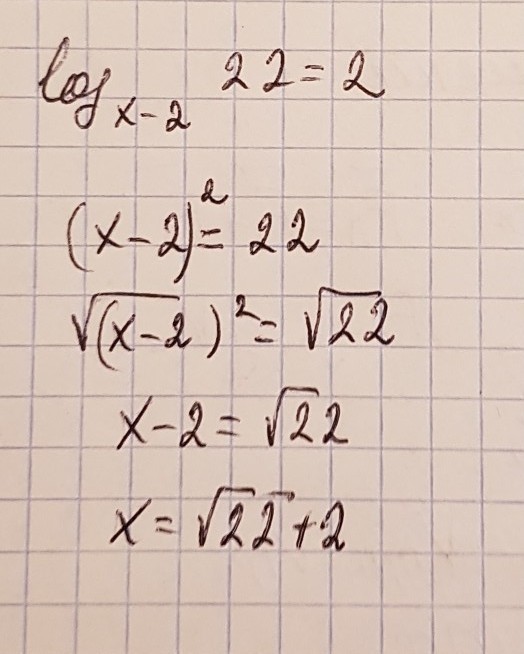 log_{x-2} 22 = 2
(x-2)^2 = 22
√(x-2)^2 = √22
x-2 = √22
x = √22 + 2